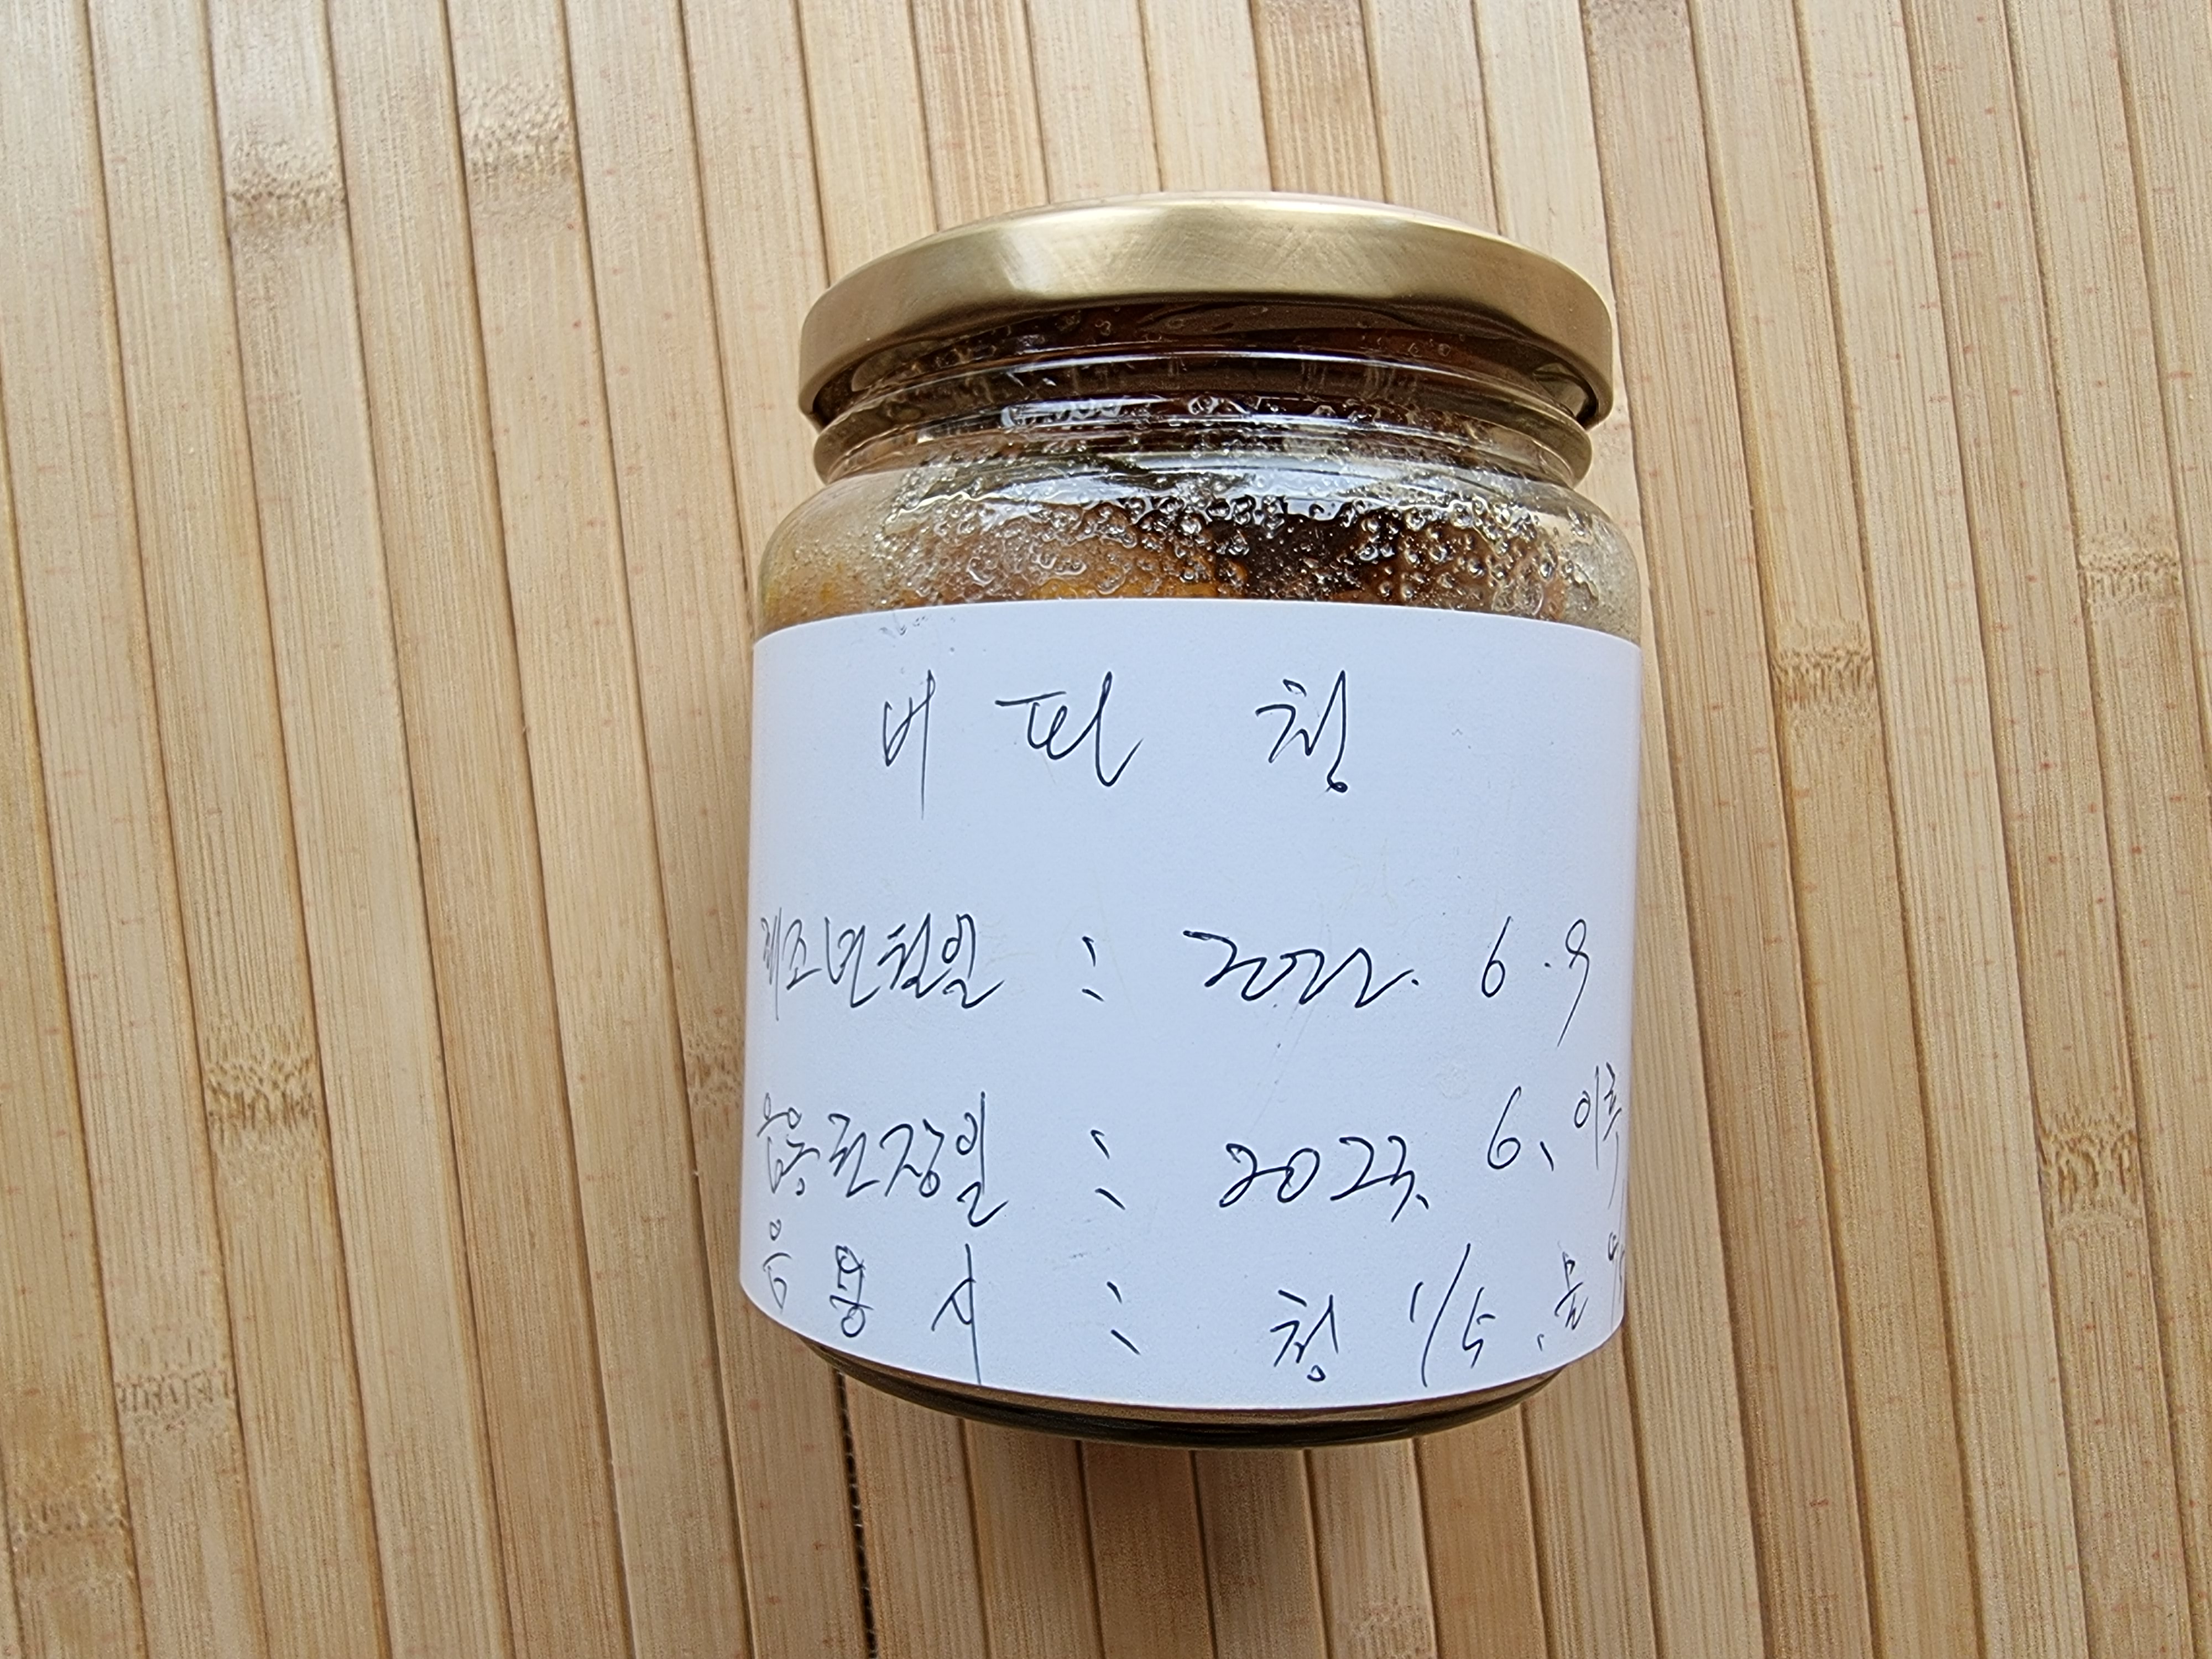 버찌 청
제조년월일 : 2022. 6. 9
음용권장일 : 2023. 6. 이후
음용시 : 청 1/5, 물 4/5